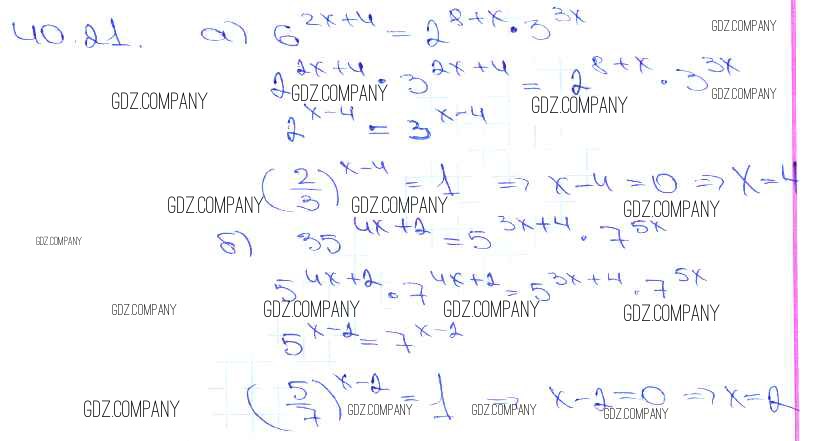 40.21. а) 6^{2x+4} = 2^{8+x} · 3^{3x} GDZ.COMPANY
2^{2x+4} · 3^{2x+4} = 2^{8+x} · 3^{3x}
GDZ.COMPANY GDZ.COMPANY GDZ.COMPANY GDZ.COMPANY
2^{x-4} = 3^{x-4}
(2/3)^{x-4} = 1 => x-4=0 => x=4
GDZ.COMPANY GDZ.COMPANY GDZ.COMPANY
GDZ.COMPANY б) 35^{4x+2} = 5^{3x+4} · 7^{5x}
5^{4x+2} · 7^{4x+2} = 5^{3x+4} · 7^{5x}
GDZ.COMPANY GDZ.COMPANY GDZ.COMPANY GDZ.COMPANY
5^{x-2} = 7^{x-2}
(5/7)^{x-2} = 1 => x-2=0 => x=2
GDZ.COMPANY GDZ.COMPANY GDZ.COMPANY GDZ.COMPANY